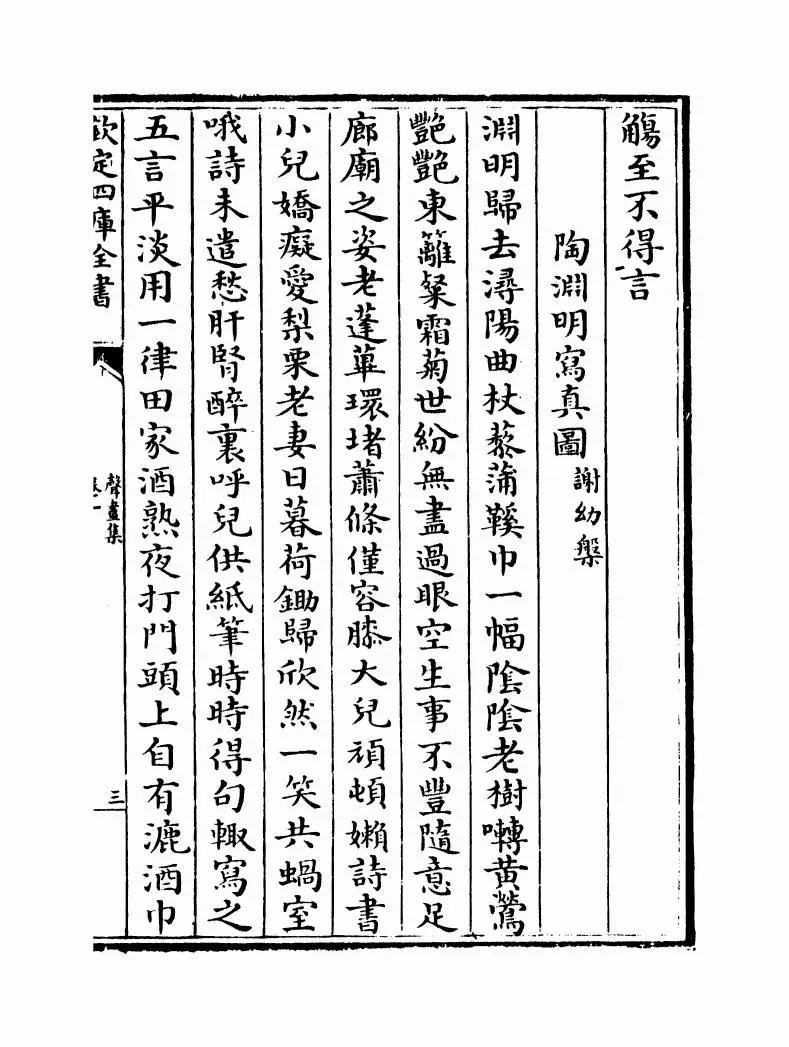 觴至不得言
陶淵明寫真圖
謝幼槃
淵明歸去潯陽曲杖藜蒲鞵巾一幅陰陰老樹囀黄鶯
艷艷東籬粲霜菊世紛無盡過眼空生事不豐隨意足
廊廟之姿老蓬蓽環堵蕭條僅容膝大兒頑頓嬾詩書
小兒嬌癡愛梨栗老妻日暮荷鋤歸欣然一笑共蝸室
哦詩未遣愁肝腎醉裏呼兒供紙筆時時得句輙寫之
五言平淡用一律田家酒熟夜打門頭上自有漉酒巾
欽定四庫全書
聲畫集
卷一
三